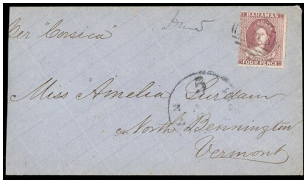 Per "Corsica"
BAHAMAS
FOUR PENCE
Miss Amelia
North Bennington
Vermont